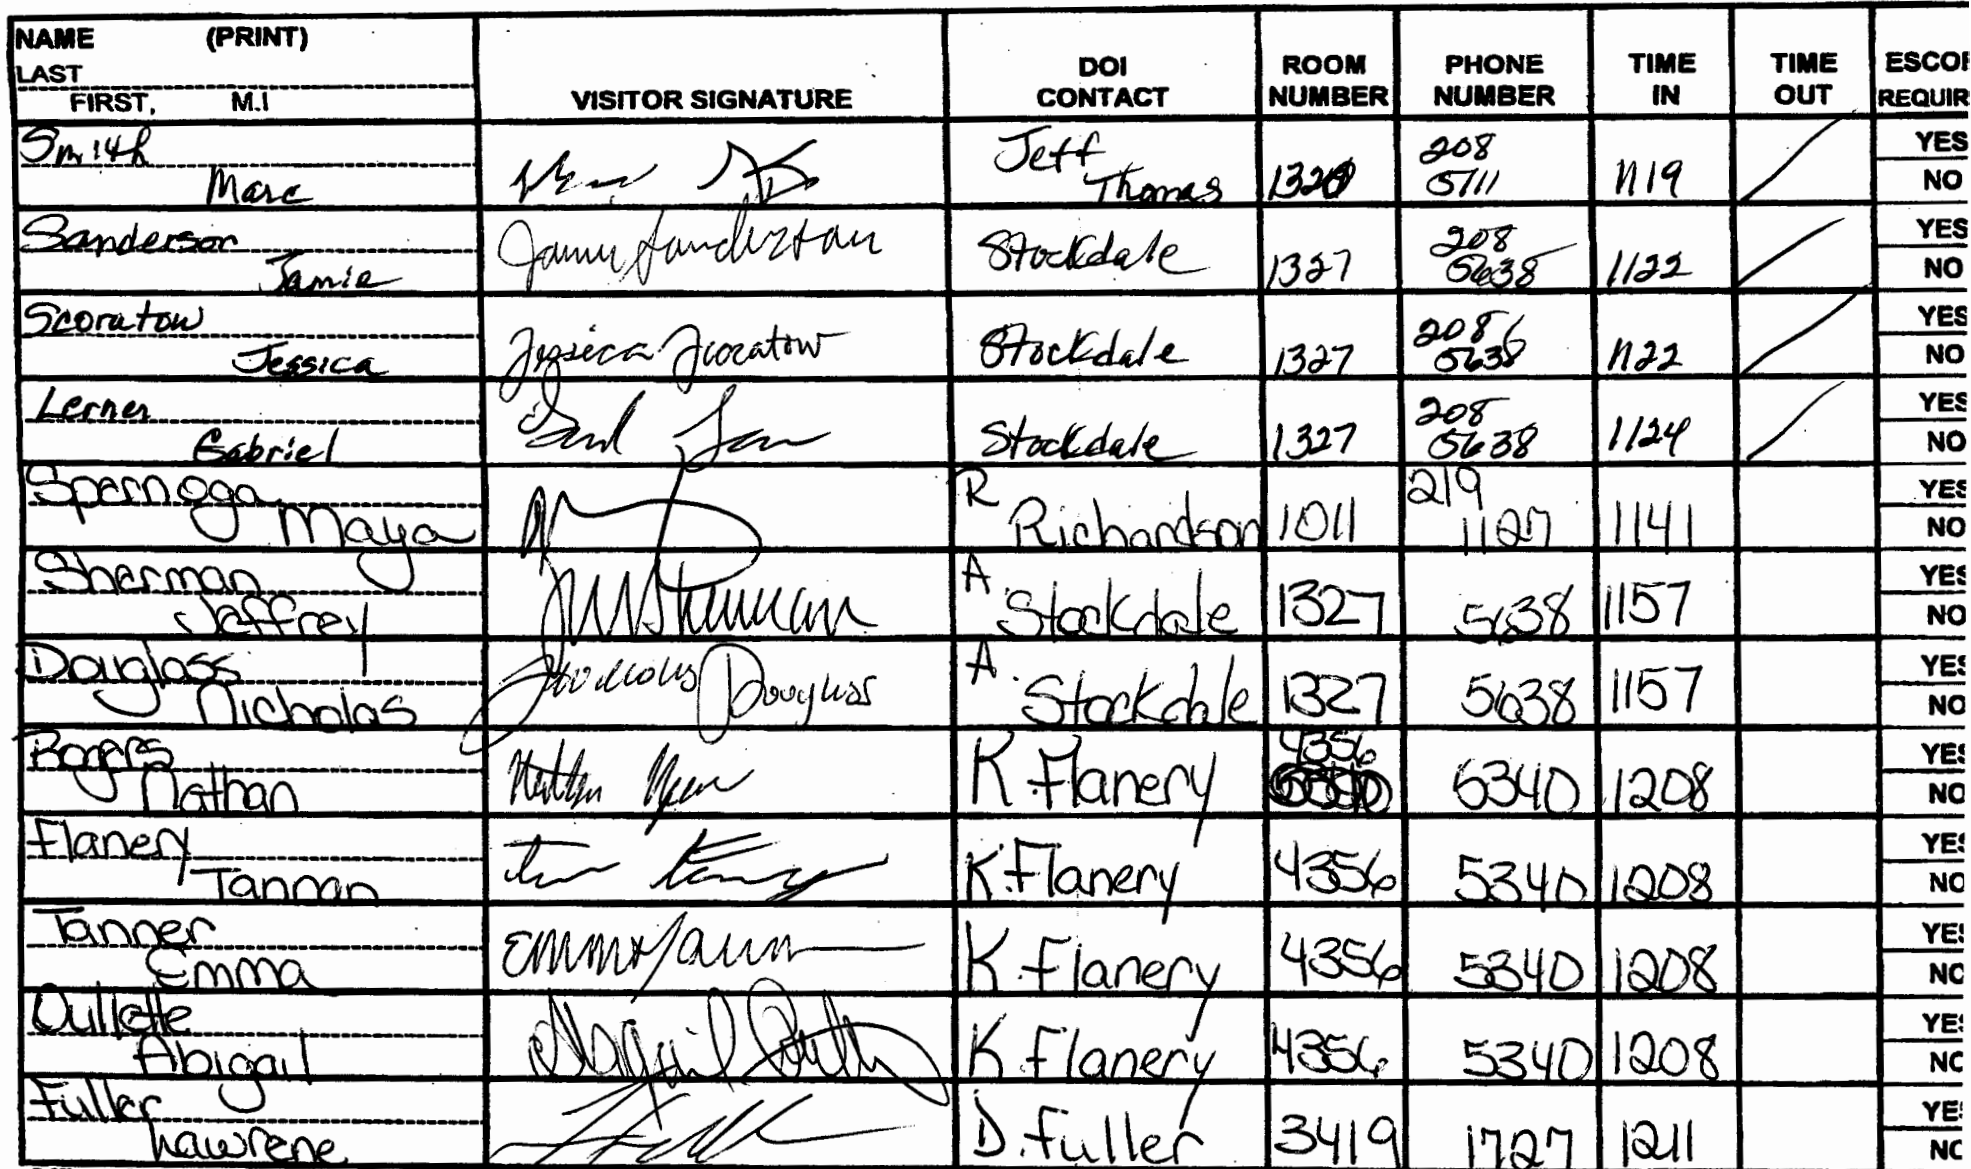 NAME (PRINT)
LAST
FIRST, M.I
VISITOR SIGNATURE
DOI CONTACT
ROOM NUMBER
PHONE NUMBER
TIME IN
TIME OUT
Smith Marc Jeff Thomas 1320 208 5711 1119 YES NO
Sanderson Jamie Jamie Sanderson Stockdale 1327 208 5638 1122 YES NO
Scoratow Jessica Jessica Scoratow Stockdale 1327 208 5638 1122 YES NO
Lerner Gabriel Stockdale 1327 208 5638 1124 YES NO
Spernoga Maya R Richardson 1011 219 1127 1141 YES NO
Sherman Jeffrey A Stockdale 1327 5638 1157 YES NO
Douglass Nicholas Nicholas Douglass A. Stockdale 1327 5638 1157 YES NO
Rogers Nathan K Flanery 4356 5340 1208 YES NO
Flanery Tannan K. Flanery 4356 5340 1208 YES NO
Tanner Emma Emma Tanner K. Flanery 4356 5340 1208 YES NO
Oullette Abigail Abigail Oullette K Flanery 4356 5340 1208 YES NO
Fuller Lawrene D. Fuller 3419 1727 1211 YES NO